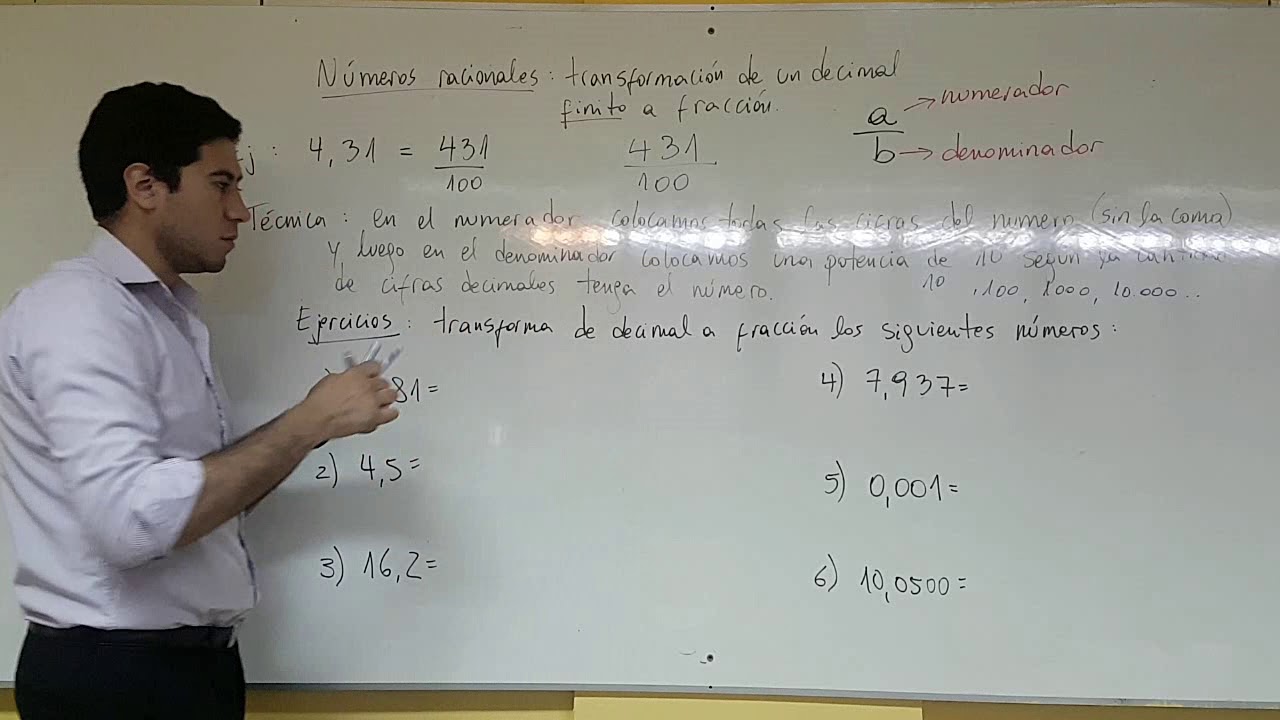 Números racionales: transformación de un decimal
finito a fracción.
a → numerador
b → denominador
j : 4,31 = 431
100
431
100
Técnica: en el numerador colocamos todas las cifras del numero (sin la coma)
y luego en el denominador colocamos una potencia de 10 según la
de cifras decimales tenga el número. 10 ,100, 1000, 10.000..
Ejercicios: transforma de decimal a fracción los siguientes números:
81=
4) 7,937=
2) 4,5=
5) 0,001=
3) 16,2=
6) 10,0500=